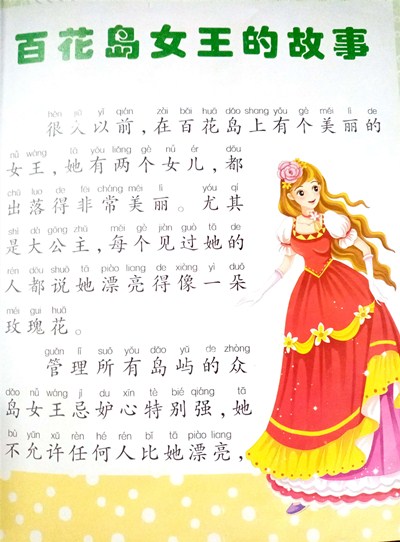 百花岛女王的故事
hěn jiǔ yǐ qián zài bǎi huā dǎo shang yǒu gè měi lì de
很久以前,在百花岛上有个美丽的
nǚ wáng tā yǒu liǎng gè nǚ ér dōu
女王,她有两个女儿,都
chū luò de fēi cháng měi lì yóu qí
出落得非常美丽。尤其
shì dà gōng zhǔ měi gè jiàn guò tā de
是大公主,每个见过她的
rén dōu shuō tā piào liang de xiàng yì duǒ
人都说她漂亮得像一朵
méi gui huā
玫瑰花。
guǎn lǐ suǒ yǒu dǎo yǔ de zhòng
管理所有岛屿的众
dǎo nǚ wáng jì dù xīn tè bié qiáng tā
岛女王忌妒心特别强,她
bù yǔn xǔ rèn hé rén bǐ tā piào liang
不允许任何人比她漂亮,